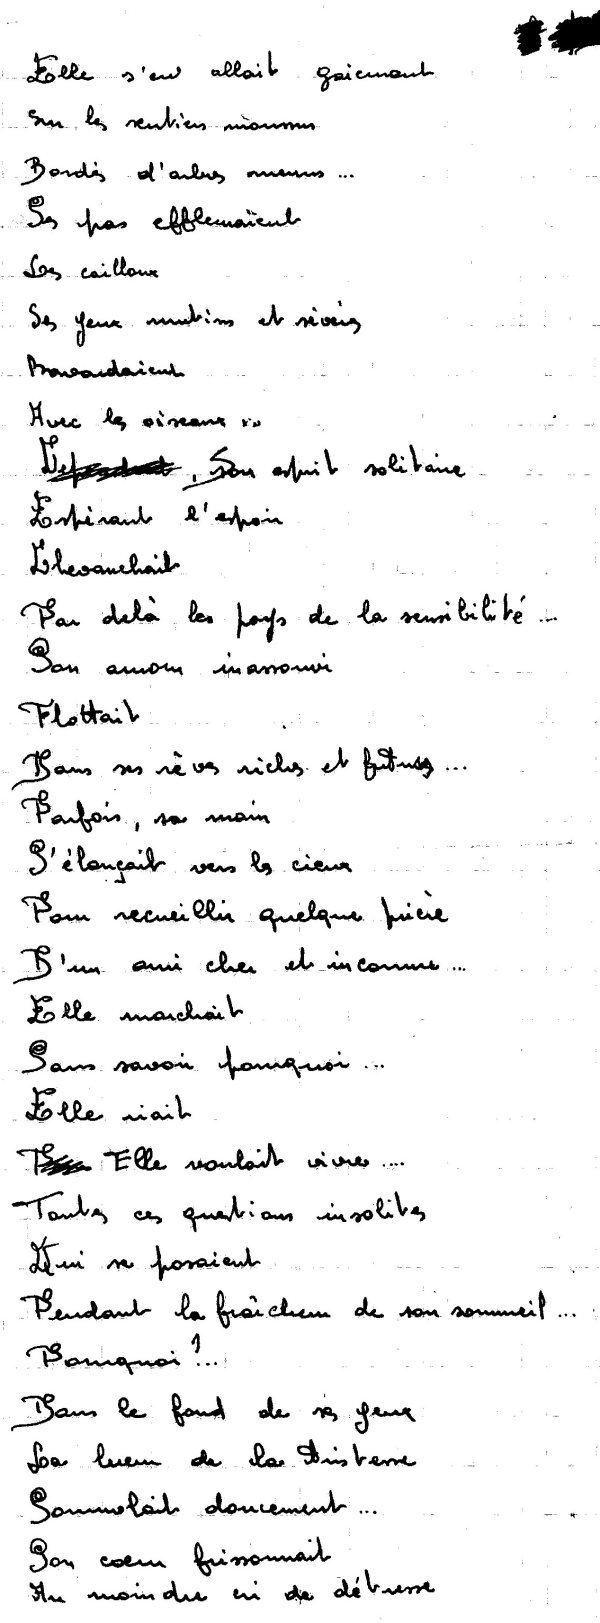 Elle s'en allait gaiement
Sur les sentiers moussus
Bordés d'arbres menus ...
Ses pas effleuraient
Les cailloux
Ses yeux mutins et rêvés
Bavardaient
Avec les oiseaux ...
, Son esprit solitaire
Espérant l'espoir
Chevauchait
Par delà les pays de la sensibilité ...
Son amour inassouvi
Flottait
Dans ses rêves riches et futurs ...
Parfois, sa main
S'élançait vers les cieux
Pour recueillir quelque prière
D'un ami cher et inconnu ...
Elle marchait
Sans savoir pourquoi ...
Elle riait
Elle voulait vivre ....
Toutes ces questions insolites
Qui se posaient
Pendant la fraîcheur de son sommeil ...
Pourquoi ? ...
Dans le fond de ses yeux
La lueur de la tristesse
Somnolait doucement ...
Son coeur frissonnait
Au moindre cri de détresse